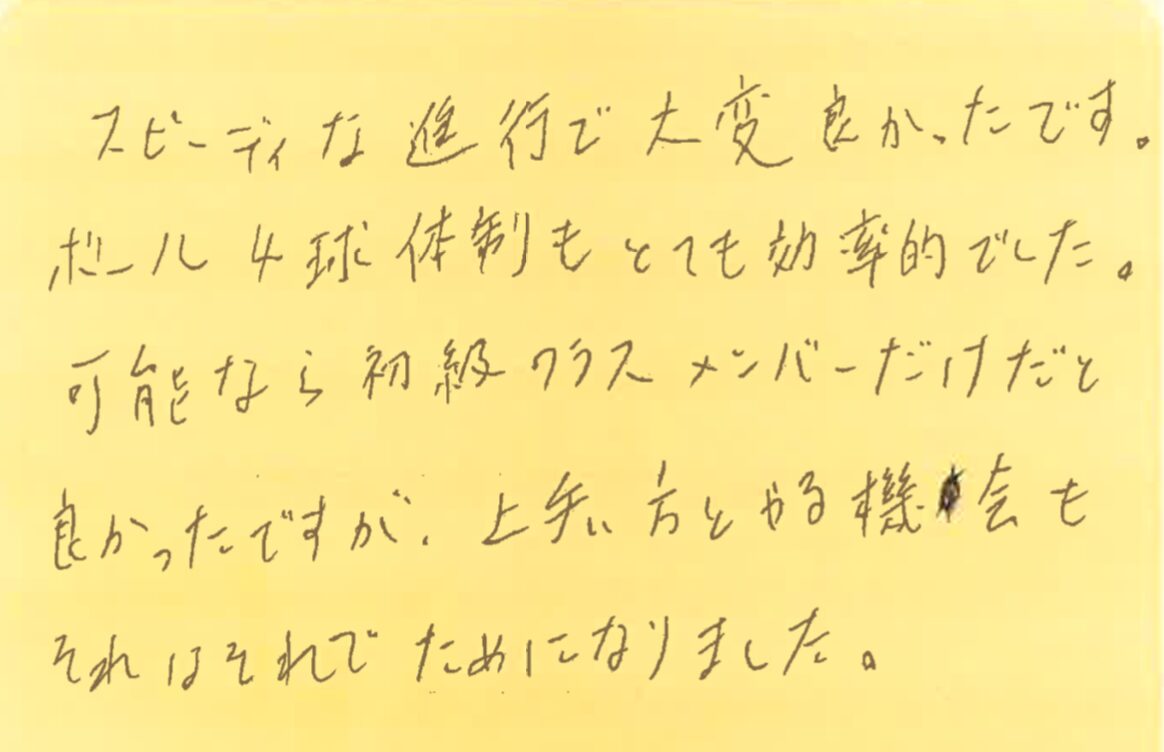 スピーディな進行で大変良かったです。
ボール4球体制もとても効率的でした。
可能なら初級クラスメンバーだけだと
良かったですが、上手い方とやる機会も
それはそれでためになりました。